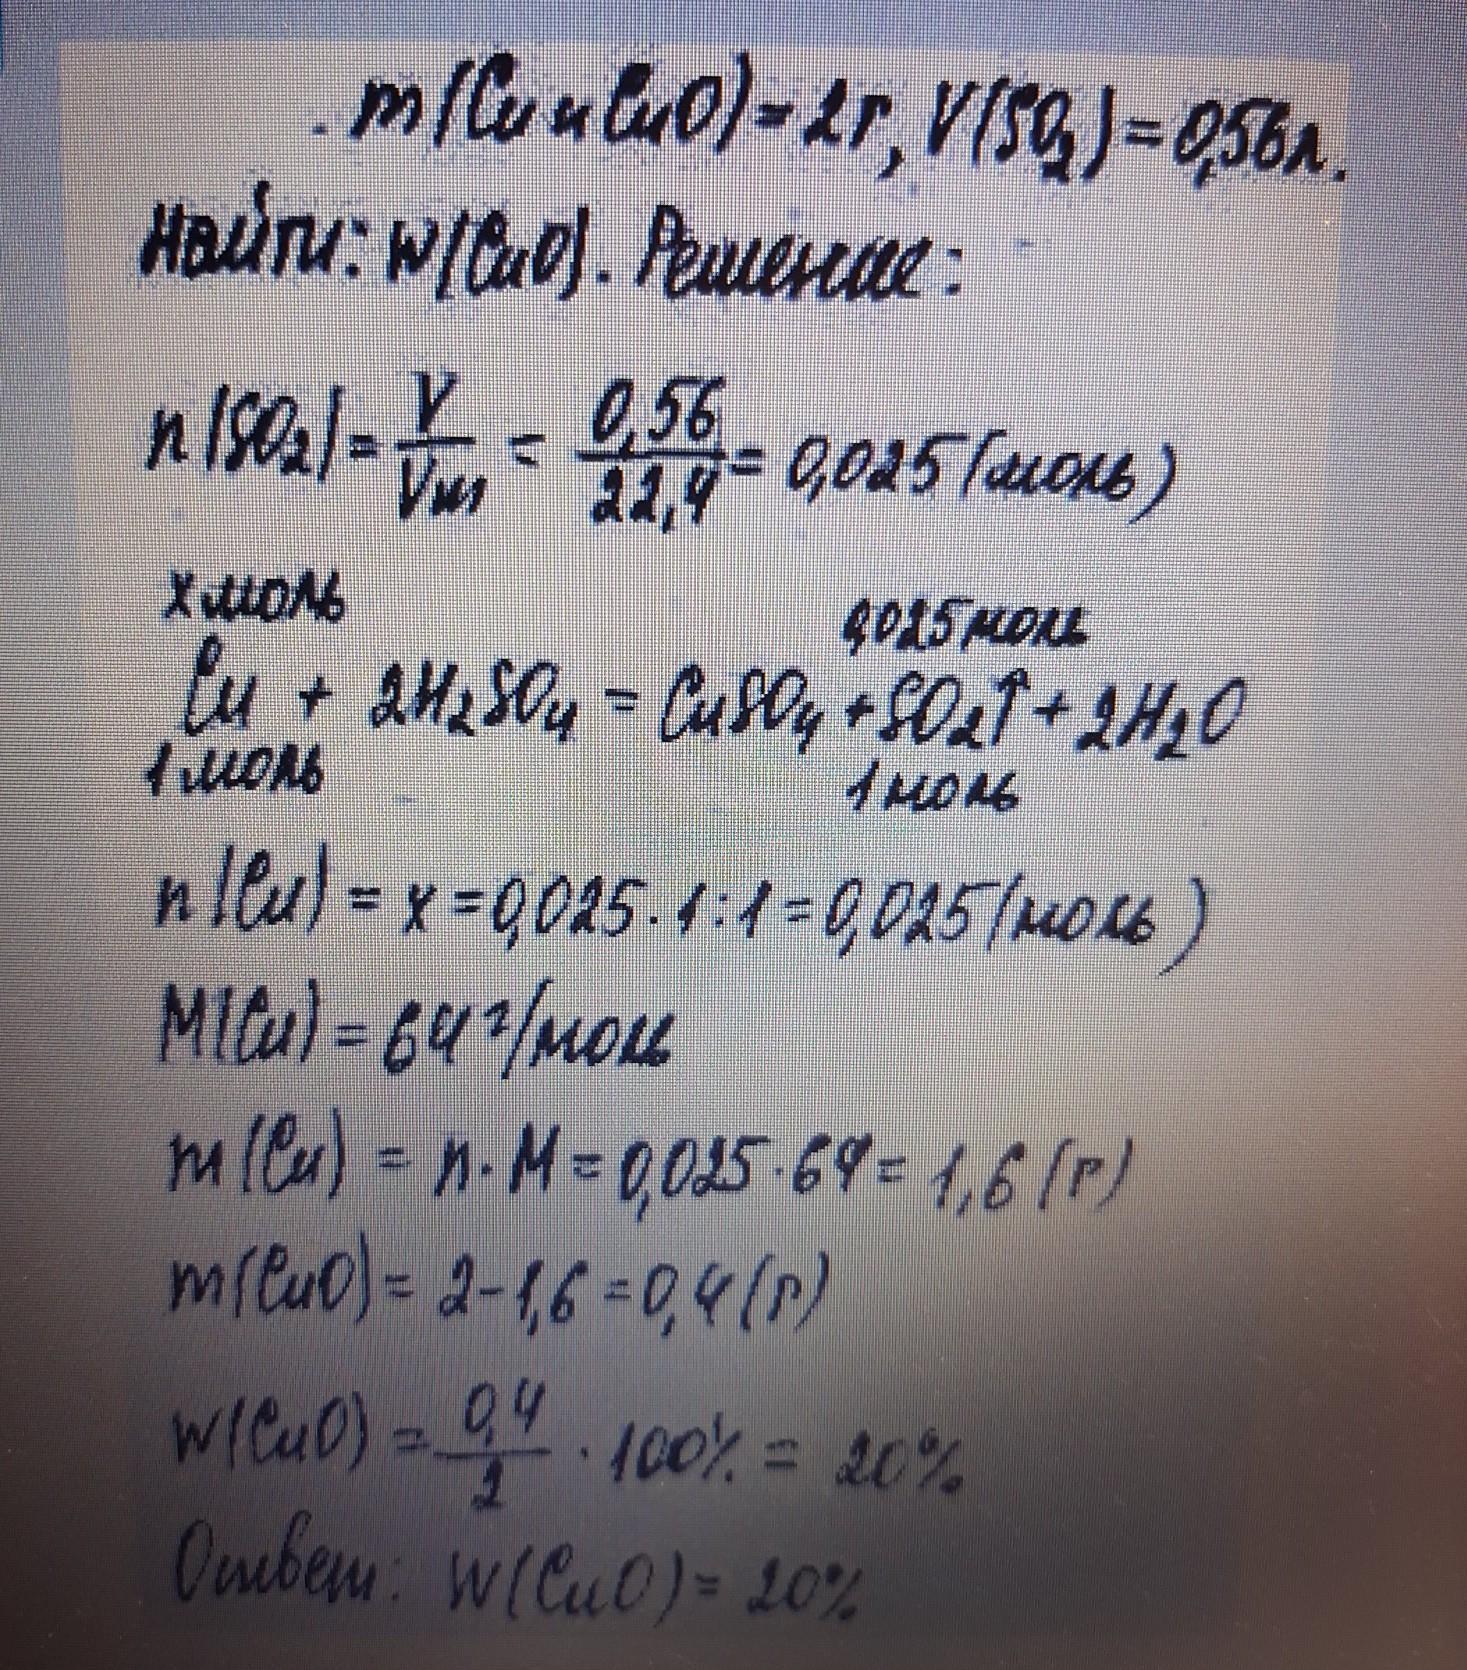 m(Cu и CuO) = 2г, V(SO₂) = 0,56л.
Найти: W(CuO). Решение:
n(SO₂) = V/Vm = 0,56/22,4 = 0,025 (моль)
x моль 0,025 моль
Cu + 2H₂SO₄ = CuSO₄ + SO₂↑ + 2H₂O
1 моль 1 моль
n(Cu) = x = 0,025 · 1 : 1 = 0,025 (моль)
M(Cu) = 64 г/моль
m(Cu) = n · M = 0,025 · 64 = 1,6 (г)
m(CuO) = 2 - 1,6 = 0,4 (г)
W(CuO) = 0,4/2 · 100% = 20%
Ответ: W(CuO) = 20%